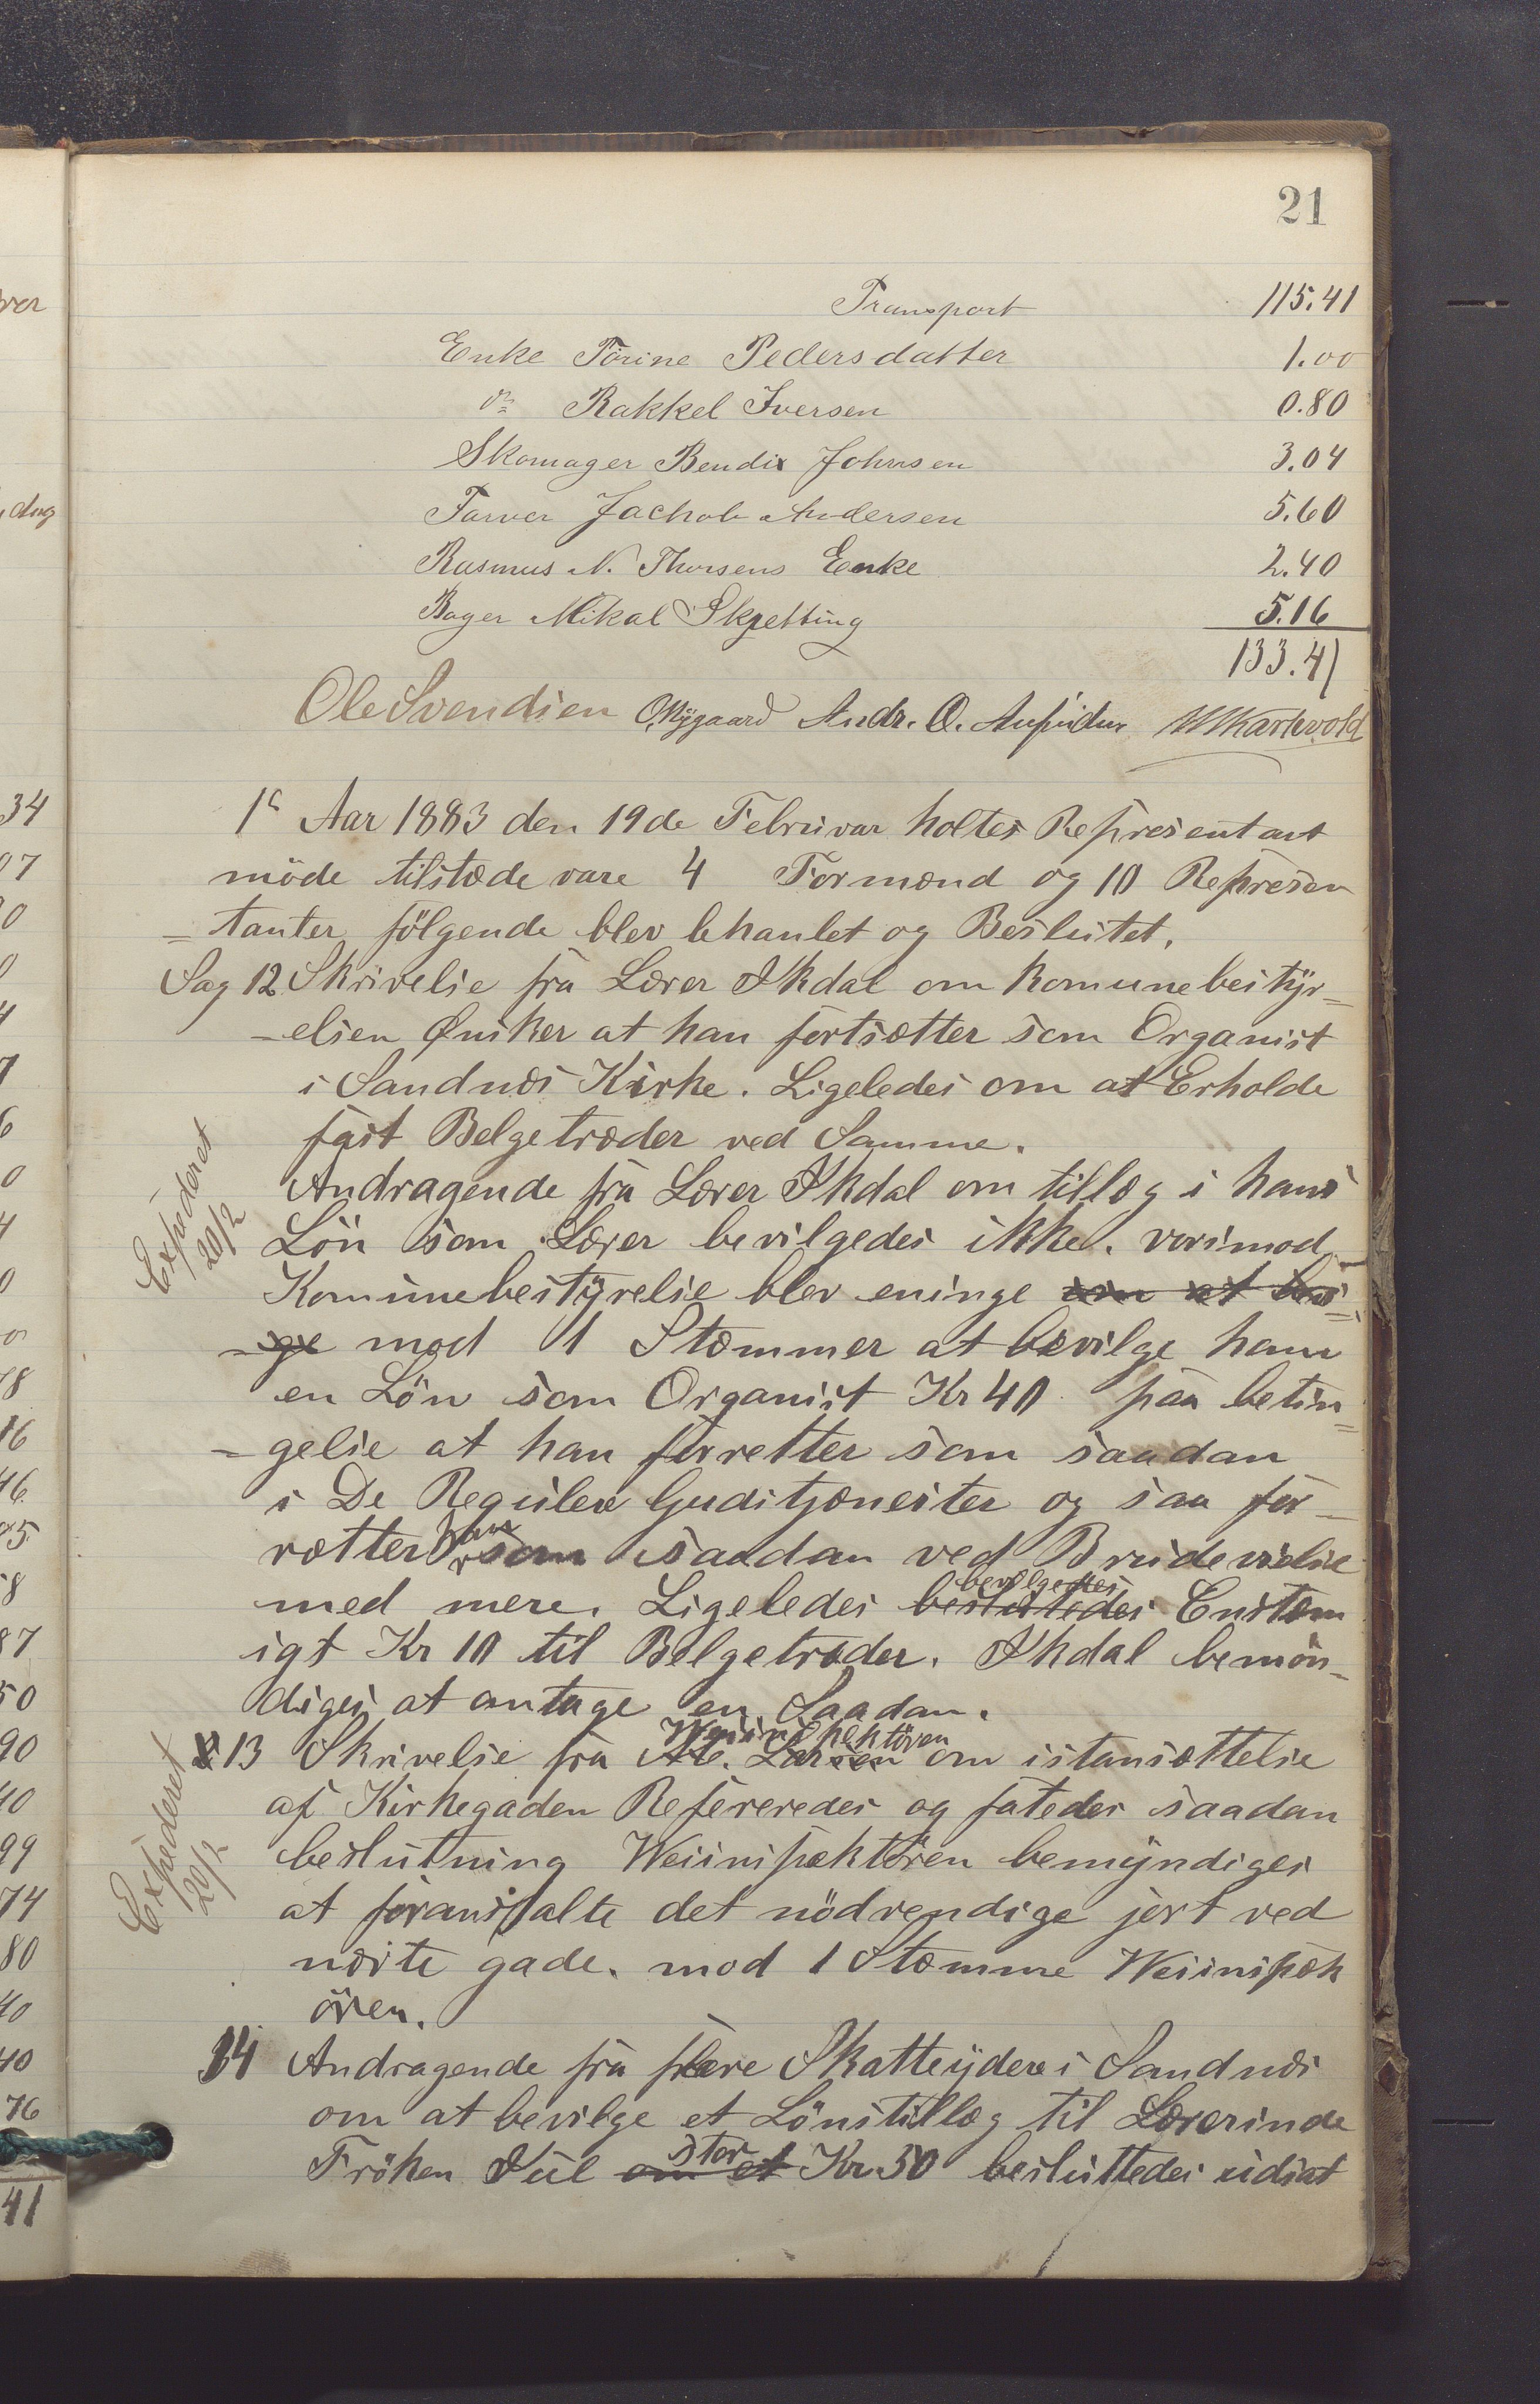 21
Transport 115.41
Enke Torine Pedersdatter 1.00
do Rakkel Iversen 0.80
Skomager Bendix Johnsen 3.04
Farver Jachob Andersen 5.60
Rasmus N. Thorsens Enke 2.40
Bager Mikal Skjetting 5.16
133.41
Ole Svendsen O. Rygaard Andr. O. Aufinsen
Aar 1883 den 19de Februar holtes Represent ant
möde tilstæde vare 4 Formænd og 10 Represen
= tanter fölgende blev behanlet og Besluttet.
Sag 12 Skrivelse fra Lærer Skdal om Komunebestyr=
-elsen Ønsker at han fortsætter som Organist
i Sandnæs Kirke. Ligeledes om at Erholde
fast Belgetræder ved Samme.
Expederet
20/2
Andragende fra Lærer Skdal om tillæg i hans
Lön som Lærer bevilgedes ikke. vorimod
Komunebestyrelse blev eninge om at bevi=
-ge mod 1 Stæmmer at bevilge ham
en Lön som Organist Kr 40 paa betin=
=gelse at han forretter som saadan
i De Regulere Gudstjænester og saa for=
rætter han som saadan ved Brudevielse
med mere. Ligeledes besluttedes bevilgedes Enstem
igt Kr 10 til Belgetræder. Skdal bemön=
diges at antage en Saadan.
Expederet
20/2
13 Skrivelse fra Larsen Weiinspektören om istansættelse
af Kirkegaden Refereredes og fatedes saadan
beslutning Weiinspæktören bemyndiges
at foranstalte det nödvendige jort ved
næste gade. mod 1 Stæmme Weiinspæk
ören.
14 Andragende fra flere Skatteydere i Sandnæs
om at bevilge et Lönstillæg til Lærerinde
Fröken Jul om et stor Kr. 50 besluttedes udsat